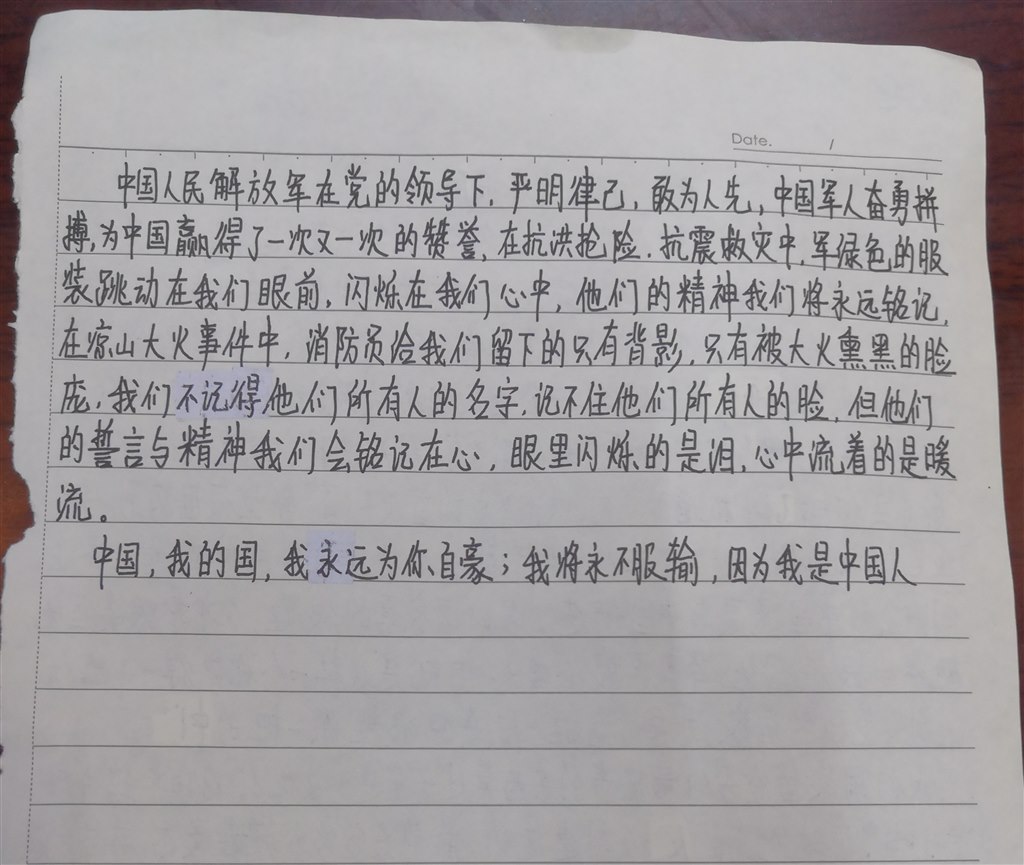 Date. /
中国人民解放军在党的领导下,严明律己,敢为人先,中国军人奋勇拼
搏,为中国赢得了一次又一次的赞誉,在抗洪抢险.抗震救灾中,军绿色的服
装跳动在我们眼前,闪烁在我们心中,他们的精神我们将永远铭记,
在凉山大火事件中,消防员给我们留下的只有背影,只有被大火熏黑的脸
庞,我们不记得他们所有人的名字,记不住他们所有人的脸,但他们
的誓言与精神我们会铭记在心,眼里闪烁的是泪,心中流着的是暖
流。
中国,我的国,我永远为你自豪;我将永不服输,因为我是中国人